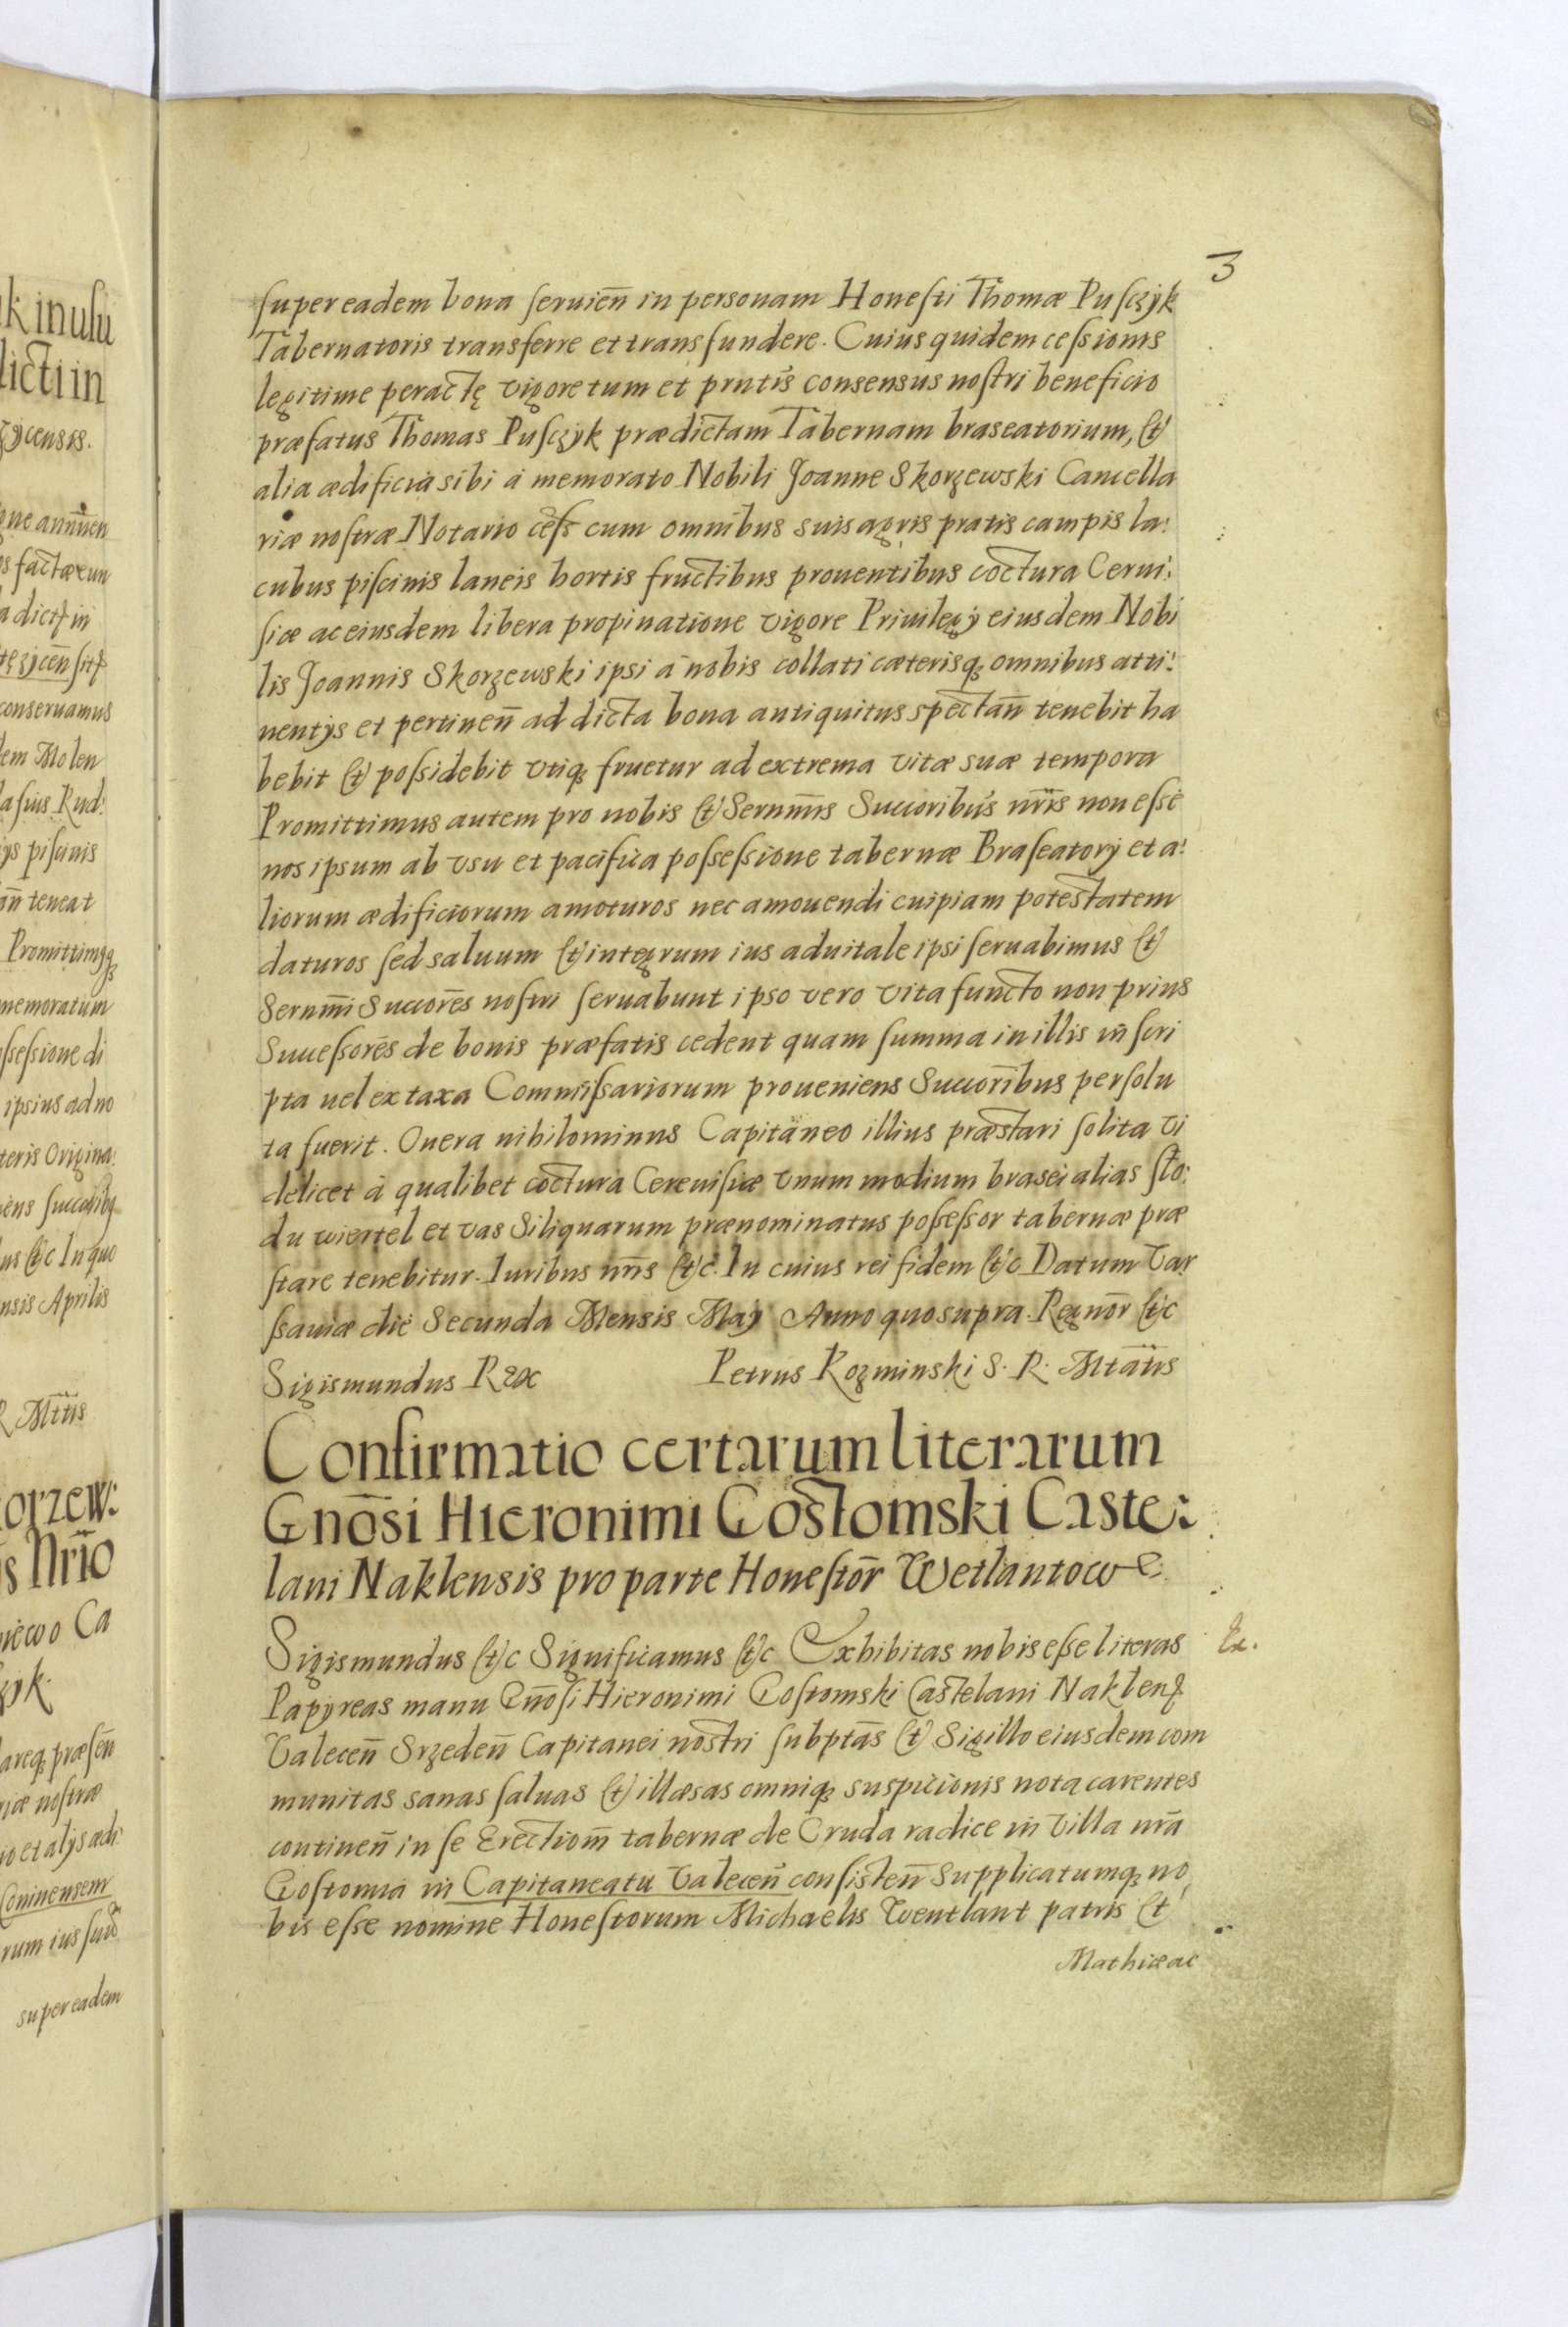 3
super eadem bona seruien̄ in personam Honesti Thomæ Pusczyk
Tabernatoris transferre et transfundere. Cuius quidem cessionis
legitime peractę vigore tum et prntis consensus nostri beneficio
præfatus Thomas Pusczyk prædictam Tabernam braseatorium, et
alia ædificia sibi á memorato Nobili Joanne Skorzewski Cancella
riæ nostræ Notario cess cum omnibus suis agris pratis campis la:
cubus piscinis laneis hortis fructibus prouentibus coctura Cerui:
siæ ac eiusdem libera propinatione vigore Priuilegÿ eiusdem Nobi
lis Joannis Skorzewski ipsi á nobis collati cæterisq̢ omnibus atti:
nentÿs et pertinen̄ ad dicta bona antiquitus spectan̄ tenebit ha
bebit et possidebit vtiq̢ fruetur ad extrema vitæ suæ tempora
Promittimus autem pro nobis et Sernm̄is Succoribus nr̄is non esse
nos ipsum ab vsu et pacifica possessione tabernæ Braseatorÿ et a:
liorum ædificiorum amoturos nec amouendi cuipiam potestatem
daturos sed saluum et integrum ius aduitale ipsi seruabimus et
Sernm̄i Succorēs nostri seruabunt ipso vero vita functo non prius
Successorēs de bonis præfatis cedent quam summa in illis in scri
pta uel ex taxa Commissariorum proueniens Succorībus persolu
ta fuerit. Onera nihilominus Capitaneo illius præstari solita vi
delicet á qualibet coctura Cereuisiæ vnum modium brasei alias sło:
du wiertel et vas Siliquarum prænominatus possessor tabernæ præ
stare tenebitur. Iuribus nr̄is etc. In cuius rei fidem etc Datum Var
ssauiæ die Secunda Mensis Maÿ Anno quo supra. Regnōr etc
Sigismundus Rex Petrus Kozminski S. R. Mtātis
Confirmatio certarum literarum
Gnōsi Hieronimi Gostomski Caste:
lani Naklensis pro parte Honestōr Wetlantowe
Sigismundus etc Significamus etc Exhibitas nobis esse literas
Ex.
Papyreas manu Gnōsi Hieronimi Gostomski Castelani Naklens̢
Valecen̄ Srzeden̄ Capitanei nostri subptās et Sigillo eiusdem com
munitas sanas saluas et illæsas omniq̢ suspicionis nota carentes
continen̄ in se Erectiom̄ tabernæ de Cruda radice in Villa nrā
Gostomia in Capitaneatu Valecen̄ consisten̄ Supplicatumq̢ no
bis esse nomine Honestorum Michaelis Wentlant patris et
Mathiæ ac